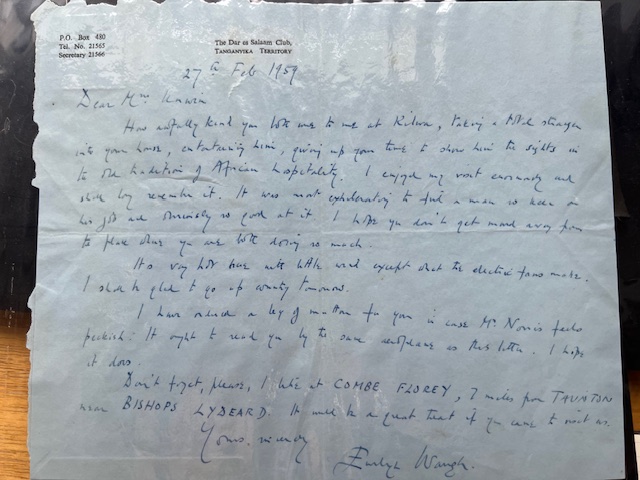 P.O. Box 480
Tel. No. 21565
Secretary 21566
The Dar es Salaam Club,
TANGANYIKA TERRITORY
27th Feb 1959
Dear Mrs
How awfully kind you both were to me at Kilwa, taking a total stranger
into your house, entertaining him, giving up your time to show him the sights in
the old tradition of African hospitality. I enjoyed my visit enormously and
shall long remember it. It was most exhilarating to find a man so keen on
his job and obviously so good at it. I hope you don't get moved away from
the place where you are both doing so much.
It's very hot here with little wind except what the electric fans make.
I shall be glad to go up country tomorrow.
I have ordered a leg of mutton for you in case Mr Norris feels
peckish. It ought to reach you by the same aeroplane as this letter. I hope
it does.
Don't forget, please, I live at COMBE FLOREY, 7 miles from TAUNTON
near BISHOPS LYDEARD. It would be a great treat if you came to visit us.
Yours sincerely
Evelyn Waugh.